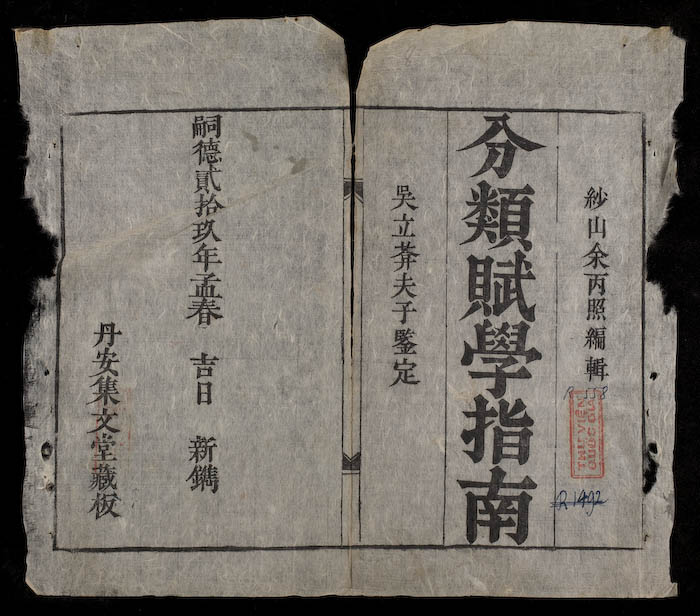 紗山余丙照編輯
分類賦學指南
吳立莾夫子鑒定
嗣德貳拾玖年孟春 吉日 新鐫
丹安集文堂藏板
THƯ VIỆN
QUỐC GIA
R 1492